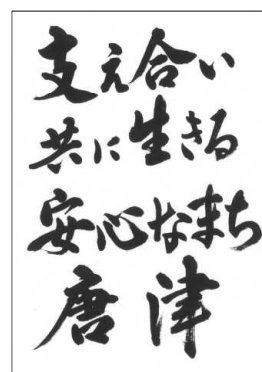 支え合い
共に生きる
安心なまち
唐津